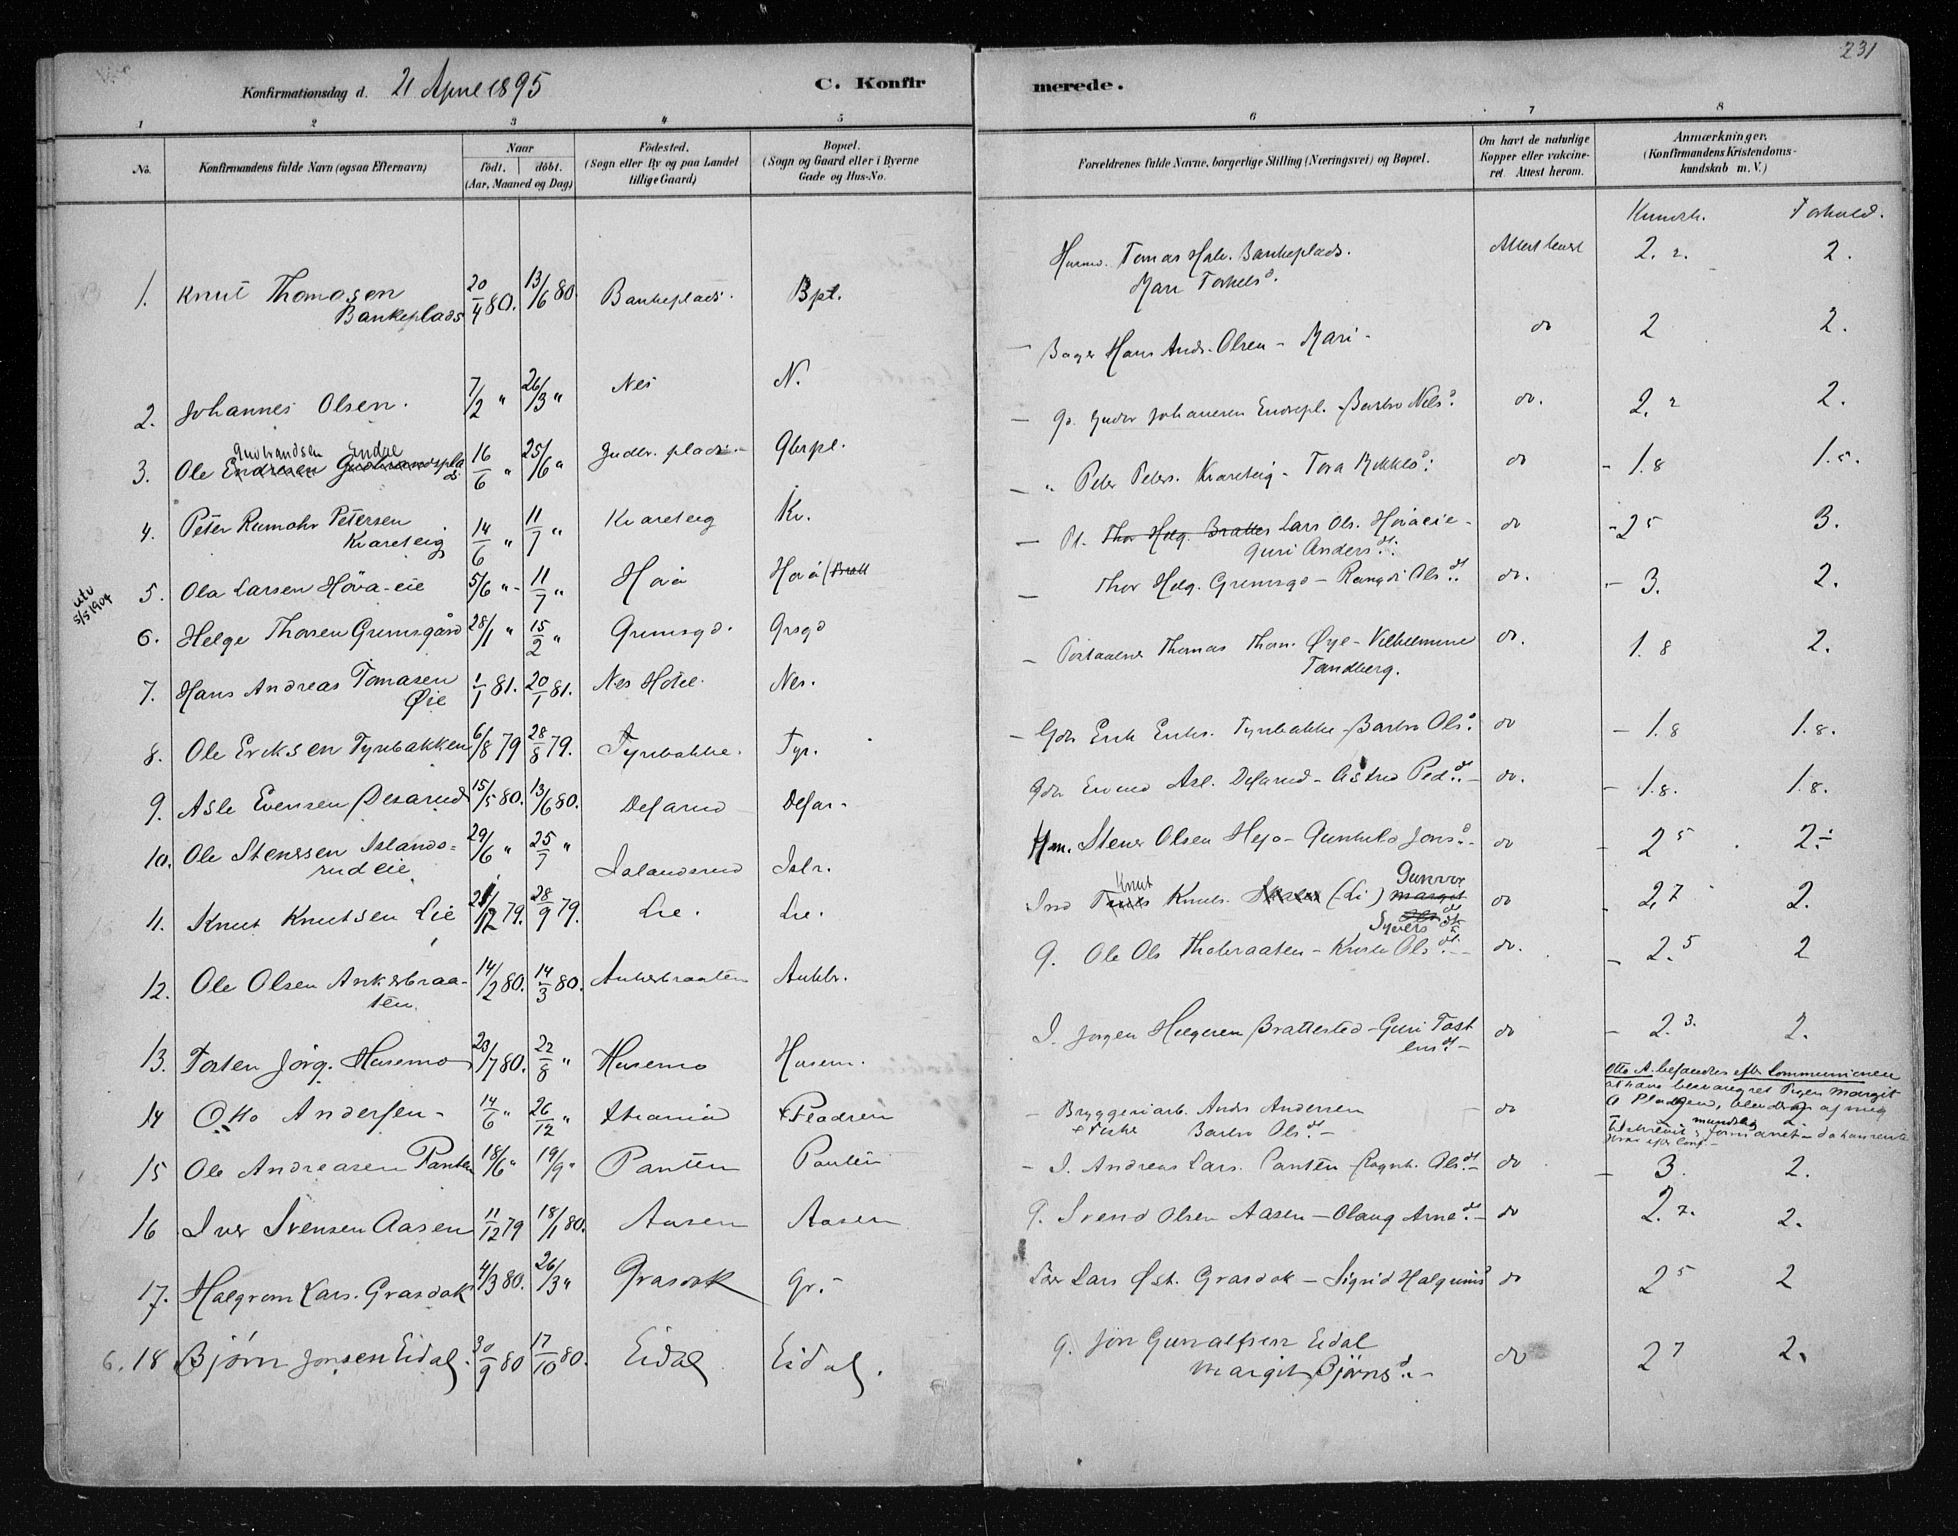 231
Konfirmationsdag d. 21 April 1895
C. Konfirmerede.
1 2 3 4 5 6 7 8
No.
Konfirmandens fulde Navn (ogsaa Efternavn)
Naar
födt. döbt.
(Aar, Maaned og Dag)
Födested.
(Sogn eller By og paa Landet
tillige Gaard)
Bopæl.
(Sogn og Gaard eller i Byerne
Gade og Hus-No.
Forældrenes fulde Navne, borgerlige Stilling (Næringsvei) og Bopæl.
Om havt de naturlige
Kopper eller vakcine-
ret. Attest herom.
Anmærkninger.
(Konfirmandens Kristendoms-
kundskab m. V.)
Kundsk. Forhold.
1. Knut Thomasen
Bankeplads 20/4 80. 13/6 80. Bankeplads. Bpl.
Tomas Halv. Bankeplads.
Mari Torkels d. 2. 2. 2.
2. Johannes Olsen. 7/2 " 26/3 " Nes N.
Hans Andr. Olsen - Mari - do 2 2.
3. Ole Endresen Gudbrandspla
ds
Gudbrandsen Endal
16/6 " 25/6 " Gudbr. plads - Gbrspl.
Barbro Nels d. do. 2. 2 2.
4. Peter Rumohr Petersen
Kvareteig 14/6 " 11/7 " Kvareteig Kv.
" Peter Peters. Kvareteig - do - 1.8 1.5.
5. Ola Larsen Höva-eie 5/6 " - 11/7 " Hová Hová (Bratt
Pl. Thor Helg. Brattes Lars Ols. Hövaeie -
Guri Anders dt. do - 2 5 3.
utv
5/5 1904
6. Helge Thorsen Grimsgård 28/1 " 15/2 " Grimsgd. Grsgd
Thor Helg. Grimsgd - Rangdi Ols dt. do. - 3. 2.
7. Hans Andreas Tomasen
Øie 1/1 81. 20/1 81. Nes Hotel. Nes.
Thomas Thom. Øye - Vilhelmine
Tandberg. do. 1.8 2.
8. Ole Ericksen Tyribakken 6/8 79 28/8 79. Tyribakke. Tyr.
Gdr Erik Eriks. Tyribakke - Barbro Ols d. do - 1.8 1.8.
9. Asle Evensen Desarud 15/5 80. 13/6 80. Desarud Desar-
Gdr Asl. Desarud - Astrid Ped dt. - do. - 1.8. 1.8.
10. Ole Stenersen Islands-
rudeie 29/6 " 25/7 " Islandsrud Islr.
Stener Olsen Hejo - Gunhild Jons d. - do - 2 5 2.
11. Knut Knutsen Lie 28/9 79. Lie. Lie.
Knut Knuts. (Li) Margit
Gunvor
Syvers dt. do 2,7 2.
12. Ole Olsen Ankerbraa-
ten. 14/2 80. 14/3 80. Ankerbraaten Ankbr.
G. Ole Ols Ols dt. - do. - 2.5 2
13. Torsten Jörg. Husemo 23/7 80. 22/8 " Husemo Husem.
I. Jorgen Helgesen Brattested - Guri Tost
ens dt. - do - 2.3. 2.
14 Otto Andersen - 14/6 " 26/12 "
- Bryggeriarb. Andr Andersen
Barbro Ols dt. - do
Otto A. befandtes efter Communionen
at have besvangret Pigen Margit
15 Ole Andreasen Panten 18/6 " 19/9 " Panten Panten
- I. Andreas Lars. Panten - Ragnh. Ols dt. - do - 3. 2.
16 Iver Svensen Aasen 11/12 79 18/1 80. Aasen Aasen
G. Svend Olsen Aasen - Olaug Arne dt. - do 2. 7. 2.
17. Halgrim Lars. Grasdok 4/3 80. 26/3 " Grasdok Gr. -
Lars Øst. Grasdok - Sigrid Halgrims d do 2 5 2
6. 18 Bjørn Jonsen Eidal. 30/9 80 17/10 80. Eidal Eidal.
G. Jon Gunalfsen Eidal
Margit Bjørns d. - do 2 7 2.